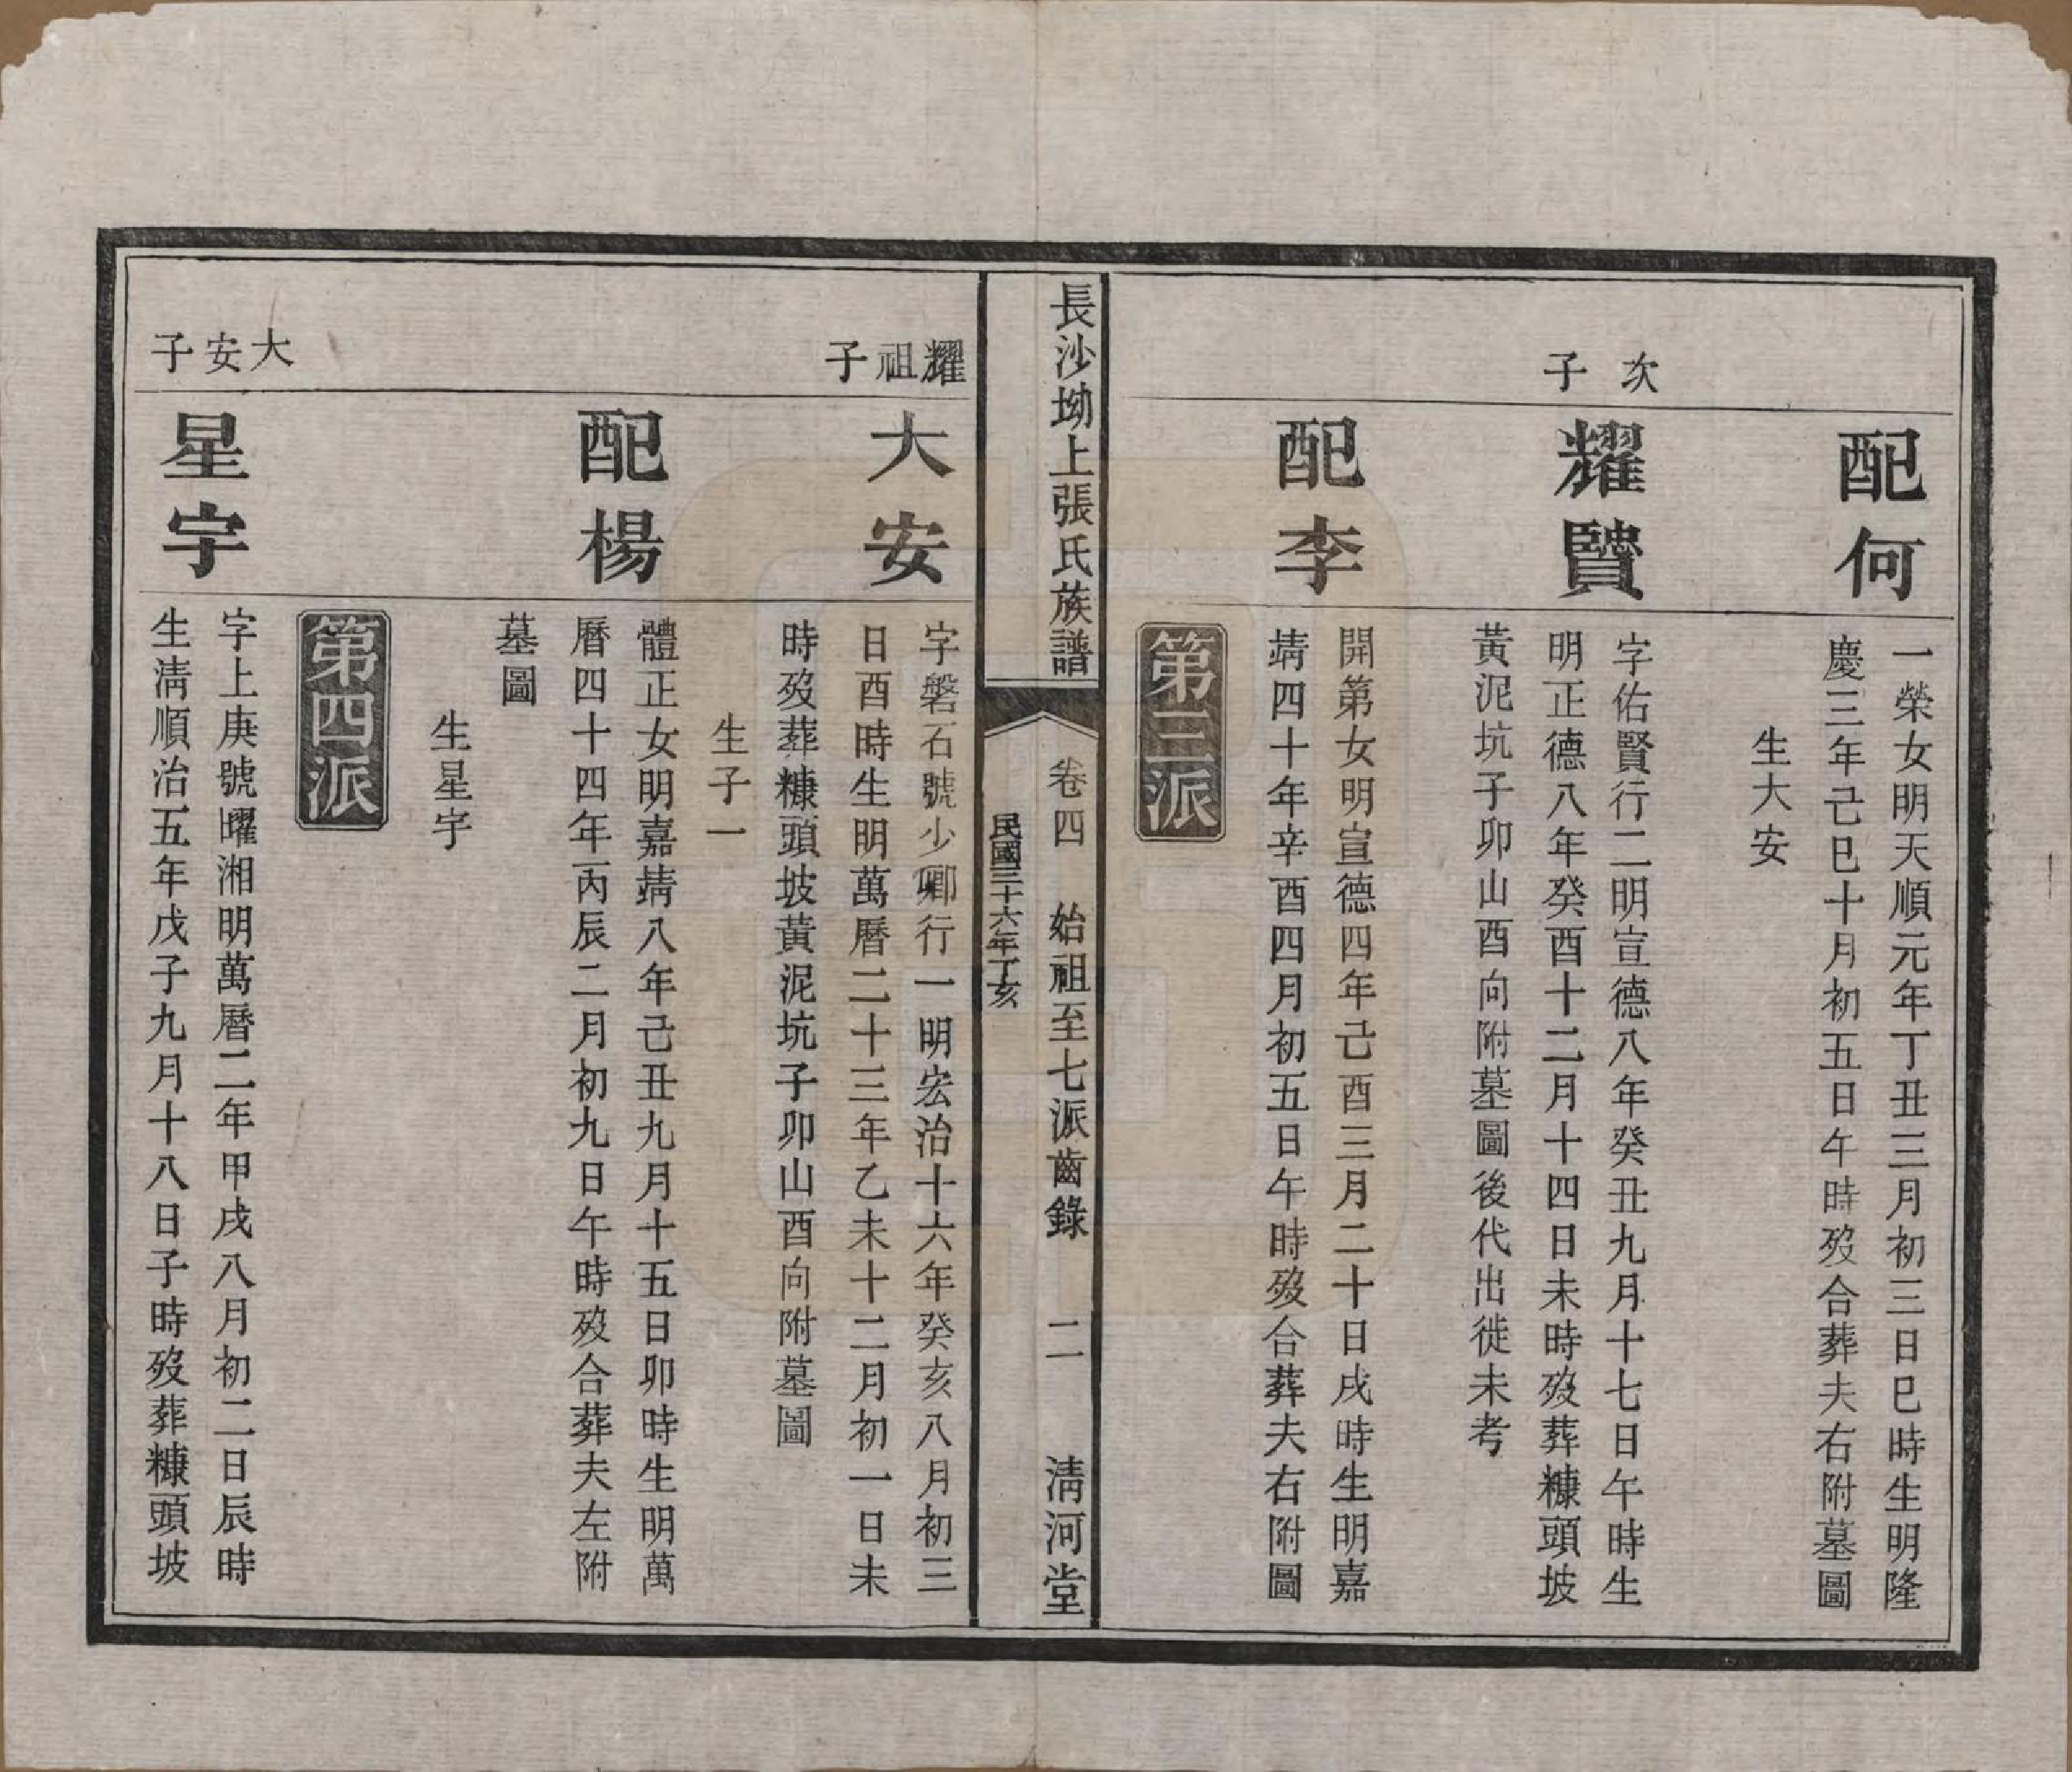 配何
一榮女明天順元年丁丑三月初三日巳時生明隆
慶三年己巳十月初五日午時歿合葬夫右附墓圖
生大安
次子
耀賢
字佑賢行二明宣德八年癸丑九月十七日午時生
明正德八年癸酉十二月十四日未時歿葬糠頭坡
黃泥坑子卯山酉向附墓圖後代出徙未考
配李
開第女明宣德四年己酉三月二十日戌時生明嘉
靖四十年辛酉四月初五日午時歿合葬夫右附圖
第三派
長沙坳上張氏族譜
卷四　始祖至七派齒錄　二　清河堂
民國三十六年丁亥
耀祖子
大安
字磐石號少卿行一明宏治十六年癸亥八月初三
日酉時生明萬曆二十三年乙未十二月初一日未
時歿葬糠頭坡黃泥坑子卯山酉向附墓圖
生子一
配楊
體正女明嘉靖八年己丑九月十五日卯時生明萬
曆四十四年丙辰二月初九日午時歿合葬夫左附
墓圖
生星宇
第四派
大安子
星宇
字上庚號曜湘明萬曆二年甲戌八月初二日辰時
生清順治五年戊子九月十八日子時歿葬糠頭坡